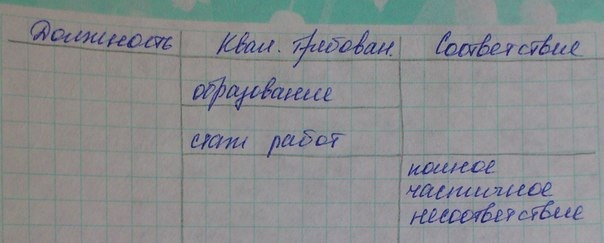 Должность Квал. Требован. Соответствие
образование
стаж работ
полное
частичное
несоответствие